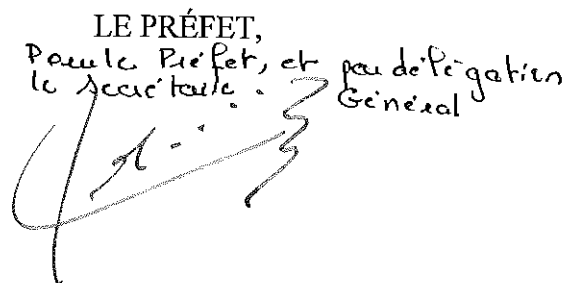 LE PRÉFET,
Pour le Préfet, et par délégation
le secrétaire Général